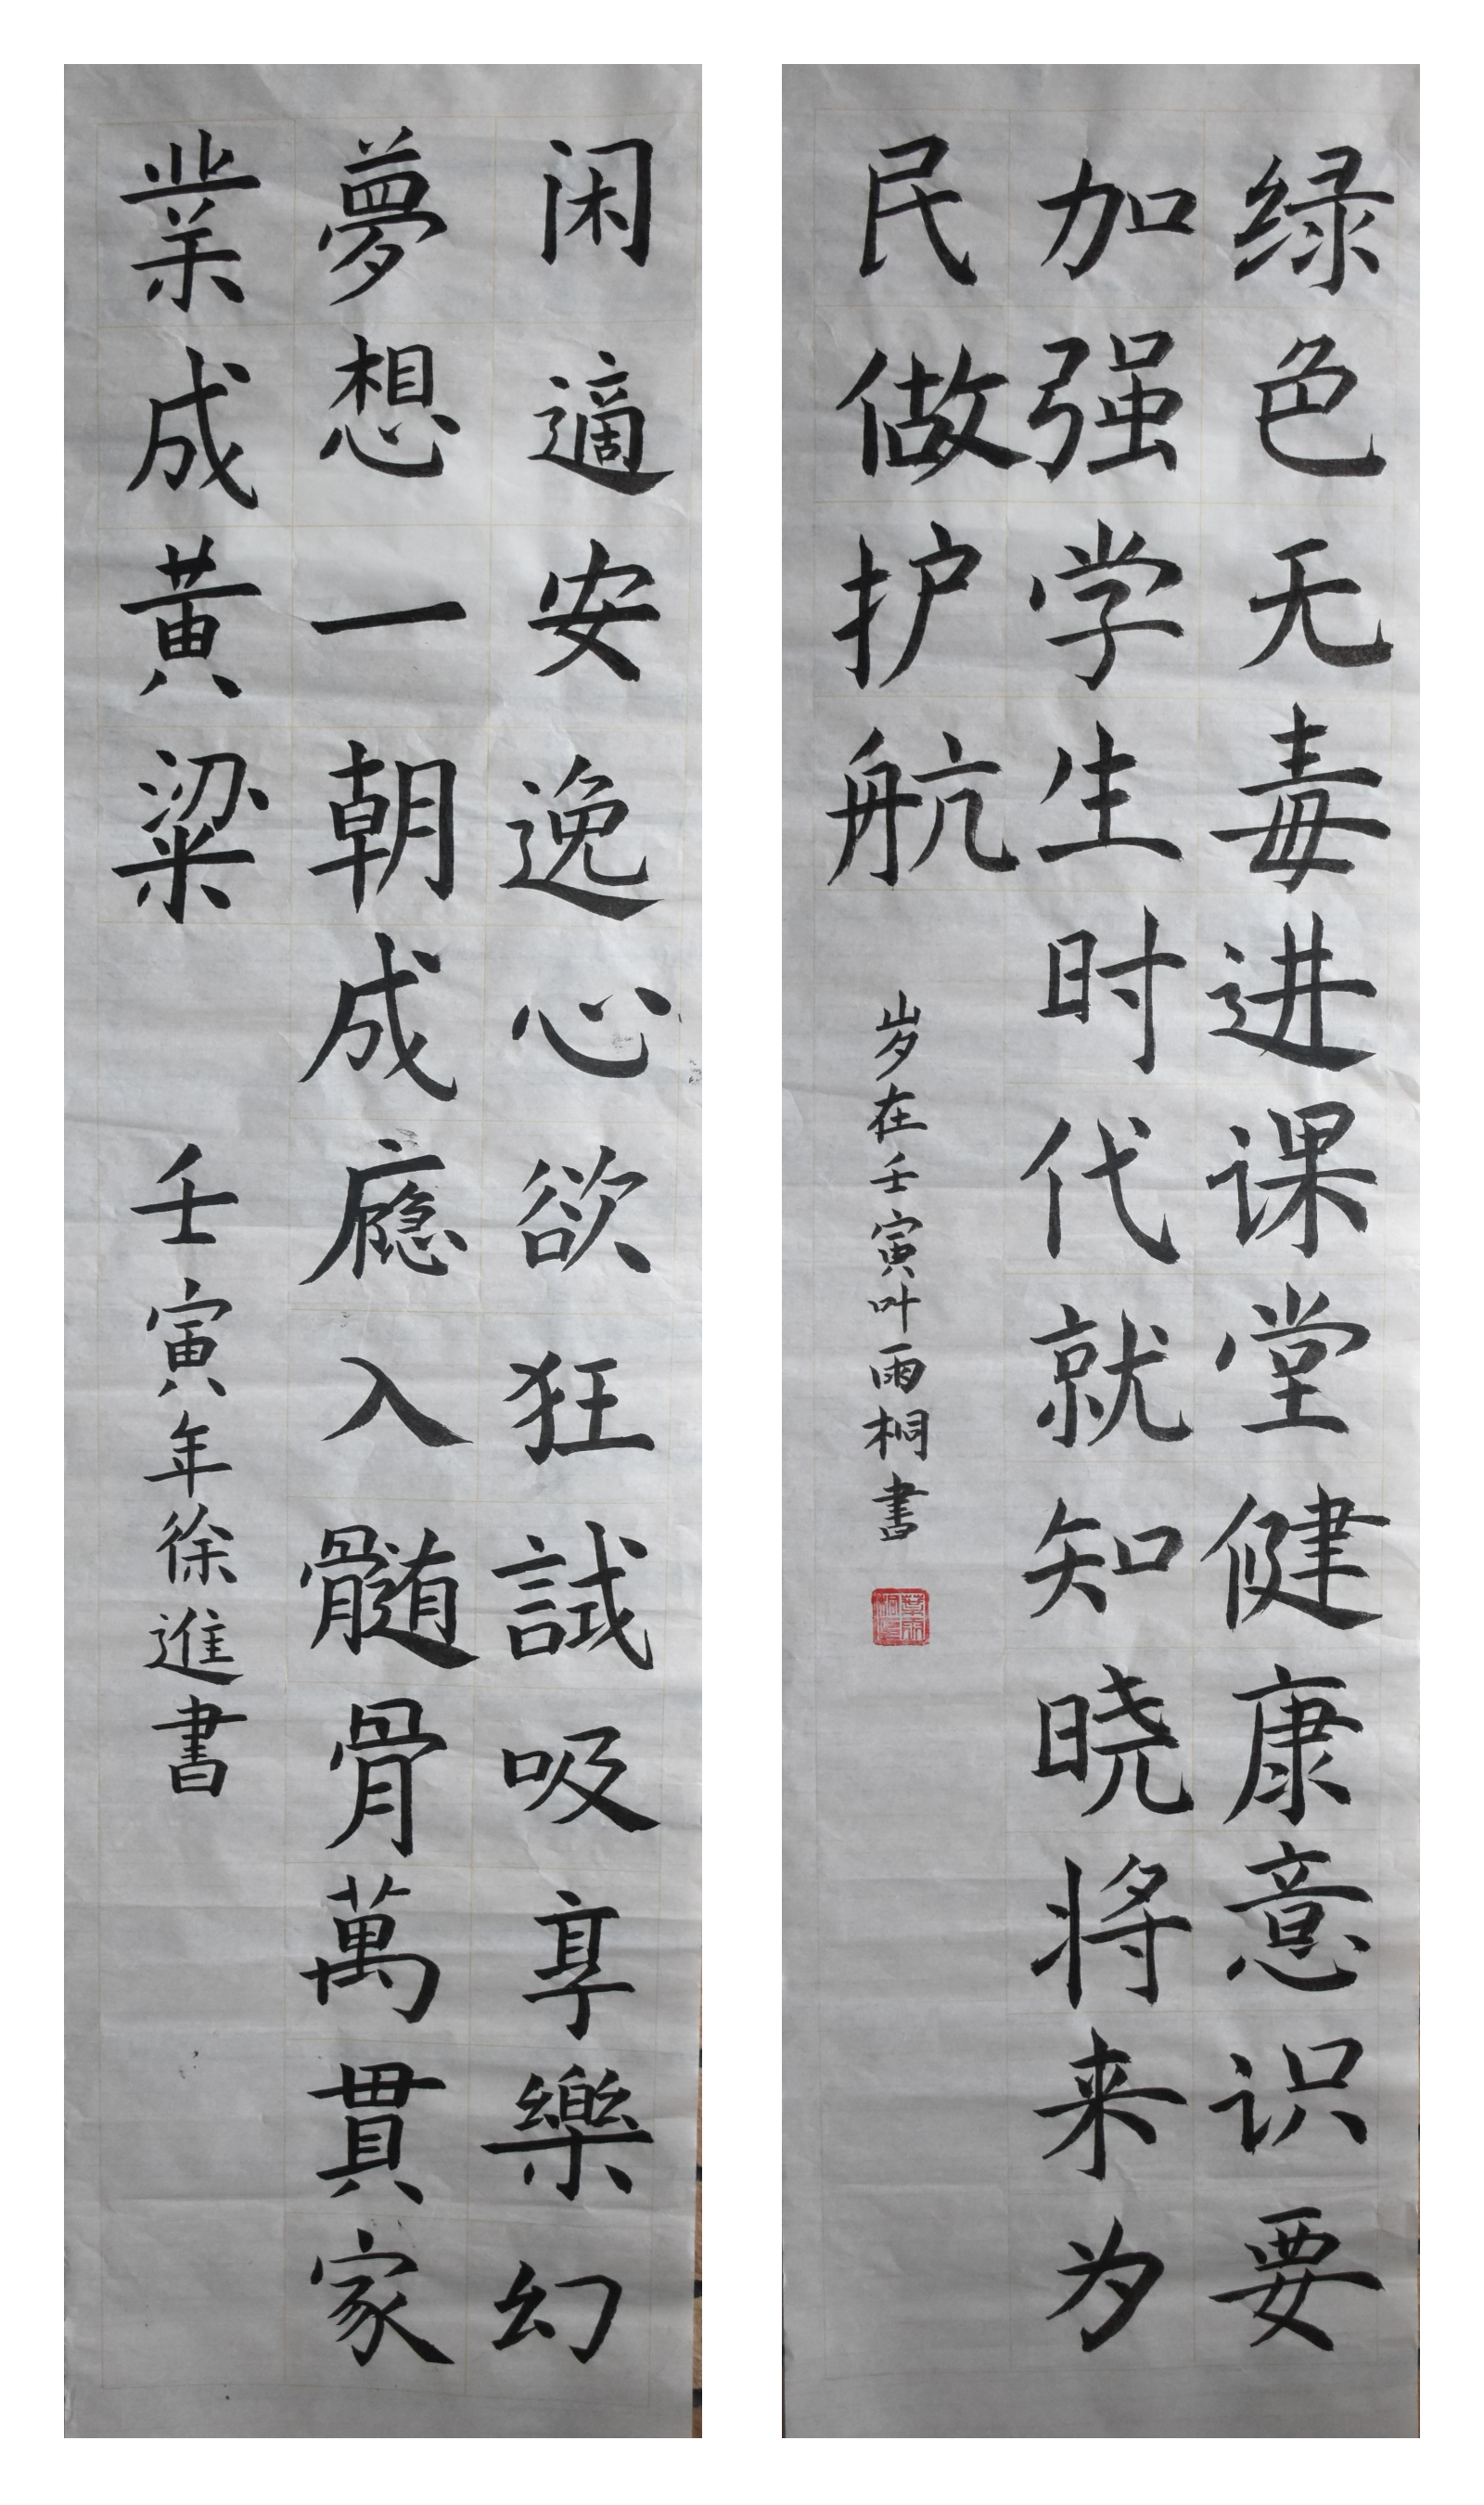 绿色无毒进课堂健康意识要
加强学生时代就知晓将来为
民做护航
岁在壬寅叶雨桐書
闲適安逸心欲狂試吸享樂幻
夢想一朝成瘾入髓骨萬貫家
業成黃粱
壬寅年徐進書